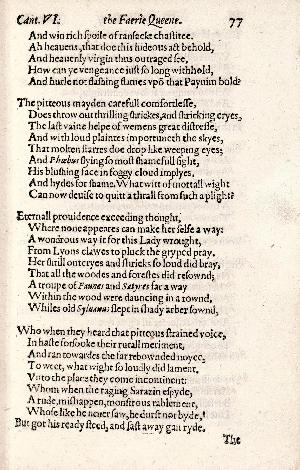 Cant. VI. the Faerie Queene. 77
And win rich spoile of ransackt chastitee.
Ah heauens, that doe this hideous act behold,
And heauenly virgin thus outraged see,
How can ye vengeance iust so long withhold,
And hurle not flashing flames vpō that Paynim bold?
The pitteous mayden carefull comfortlesse,
Does throw out thrilling shriekes, and shrieking cryes,
The last vaine helpe of wemens great distresse,
And with loud plaintes importuneth the skyes,
That molten starres doe drop like weeping eyes;
And Phœbus flying so most shamefull sight,
His blushing face in foggy cloud implyes,
And hydes for shame. What witt of mortall wight
Can now deuise to quitt a thrall from such a plight?
Eternall prouidence exceeding thought,
Where none appeares can make her selfe a way:
A wondrous way it for this Lady wrought,
From Lyons clawes to pluck the gryped pray.
Her shrill outcryes and shrieks so loud did bray,
That all the woodes and forestes did resownd;
A troupe of Faunes and Satyres far a way
Within the wood were dauncing in a rownd,
Whiles old Syluanus slept in shady arber sownd,
Who when they heard that pitteous strained voice,
In haste forsooke their rurall meriment,
And ran towardes the far rebownded noyce,
To weet, what wight so loudly did lament.
Vnto the place they come incontinent:
Whom when the raging Sarazin espyde,
A rude, mishapen, monstrous rablement,
Whose like he neuer saw, he durst not byde,
But got his ready steed, and fast away gan ryde.
The